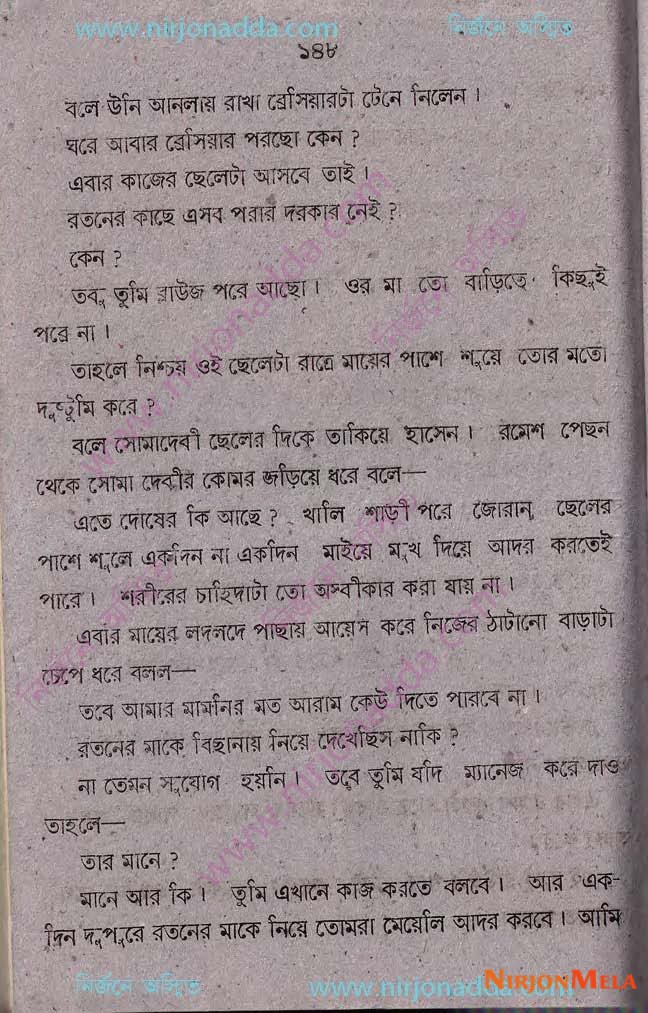 www.nirjonadda.com নির্জনে অস্মিত
১৪৮
বলে উনি আনলায় রাখা ব্রেসিয়ারটা টেনে নিলেন ।
ঘরে আবার ব্রেসিয়ার পরছো কেন ?
এবার কাজের ছেলেটা আসবে তাই ।
রতনের কাছে এসব পরার দরকার নেই ?
কেন ?
তবু তুমি ব্লাউজ পরে আছো । ওর মা তো বাড়িতে কিছুই
পরে না ।
তাহলে নিশ্চয় ওই ছেলেটা রাত্রে মায়ের পাশে শুয়ে তোর মতো
দুষ্টুমি করে ?
বলে সোমাদেবী ছেলের দিকে তাকিয়ে হাসেন । রমেশ পেছন
থেকে সোমা দেবীর কোমর জড়িয়ে ধরে বলে—
এতে দোষের কি আছে ? খালি শাড়ী পরে জোয়ান ছেলের
পাশে শুলে একদিন না একদিন মাইয়ে মুখ দিয়ে আদর করতেই
পারে । শরীরের চাহিদাটা তো অস্বীকার করা যায় না ।
এবার মায়ের লদলদে পাছায় আয়েস করে নিজের ঠাটানো বাড়াটা
চেপে ধরে বলল—
তবে আমার মামনির মত আরাম কেউ দিতে পারবে না ।
রতনের মাকে বিছানায় নিয়ে দেখেছিস নাকি ?
না তেমন সুযোগ হয়নি । তবে তুমি যদি ম্যানেজ করে দাও
তাহলে—
তার মানে ?
মানে আর কি । তুমি এখানে কাজ করতে বলবে । আর এক-
দিন দুপুরে রতনের মাকে নিয়ে তোমরা মেয়েলি আদর করবে । আমি
নির্জনে অস্মিত www.nirjonadda.com NIRJONMELA